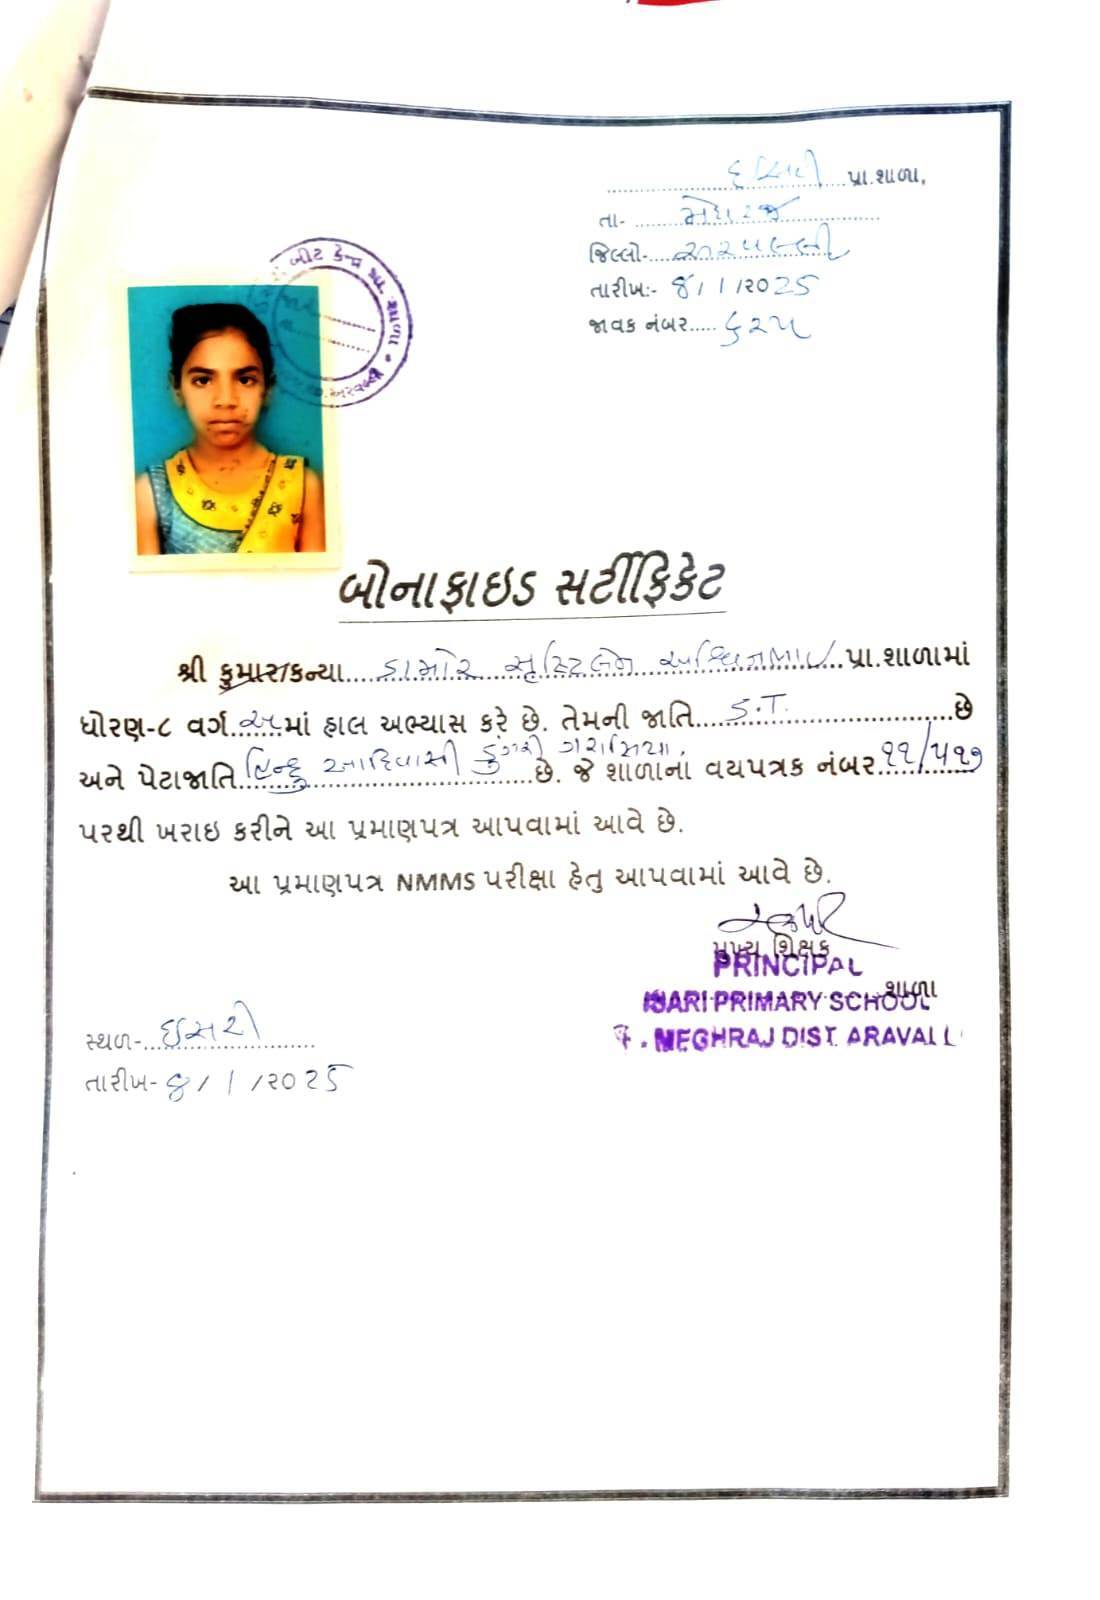 ઇસરી પ્રા.શાળા,
તા- મેઘરજ
જિલ્લો- અરવલ્લી
તારીખ:- 8/1/૨૦25
જાવક નંબર..... ૬૨૫
બીટ કેન્દ્ર પ્રા. શાળા
અરવલ્લી
બોનાફાઇડ સર્ટીફિકેટ
શ્રી કુમાર/કન્યા ડામોર સૃસ્ટિબેન અશ્વિનભાઇ પ્રા.શાળામાં
ધોરણ-૮ વર્ગ અ માં હાલ અભ્યાસ કરે છે. તેમની જાતિ S.T. છે
અને પેટાજાતિ હિન્દુ આદિવાસી ડુંગરી ગરાસિયા છે. જે શાળાના વયપત્રક નંબર ૧૧/૫૧૭
પરથી ખરાઇ કરીને આ પ્રમાણપત્ર આપવામાં આવે છે.
આ પ્રમાણપત્ર NMMS પરીક્ષા હેતુ આપવામાં આવે છે.
મુખ્ય શિક્ષક
PRINCIPAL
શાળા
ISARI PRIMARY SCHOOL
MEGHRAJ DIST. ARAVALL
સ્થળ- ઇસરી
તારીખ- 8/1/૨૦25